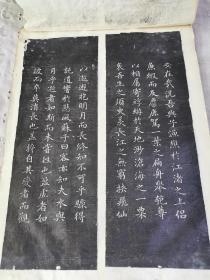 安在哉況吾與子漁樵於江渚之上侶
魚鰕而友麋鹿駕一葉之扁舟舉匏尊
以相屬寄蜉蝣於天地渺滄海之一粟
哀吾生之須臾羨長江之無窮挾飛仙
以遨遊抱明月而長終知不可乎驟得
託遺響於悲風蘇子曰客亦知夫水與
月乎逝者如斯而未嘗往也盈虛者如
彼而卒莫消長也蓋將自其變者而觀